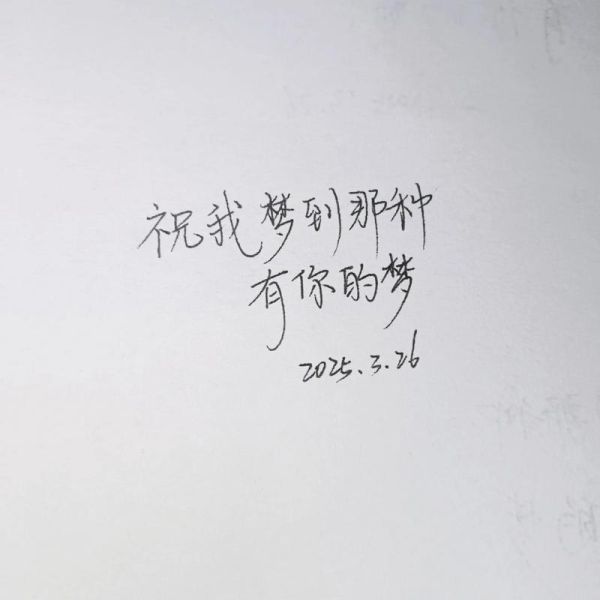 祝我梦到那种
有你的梦
2025.3.26